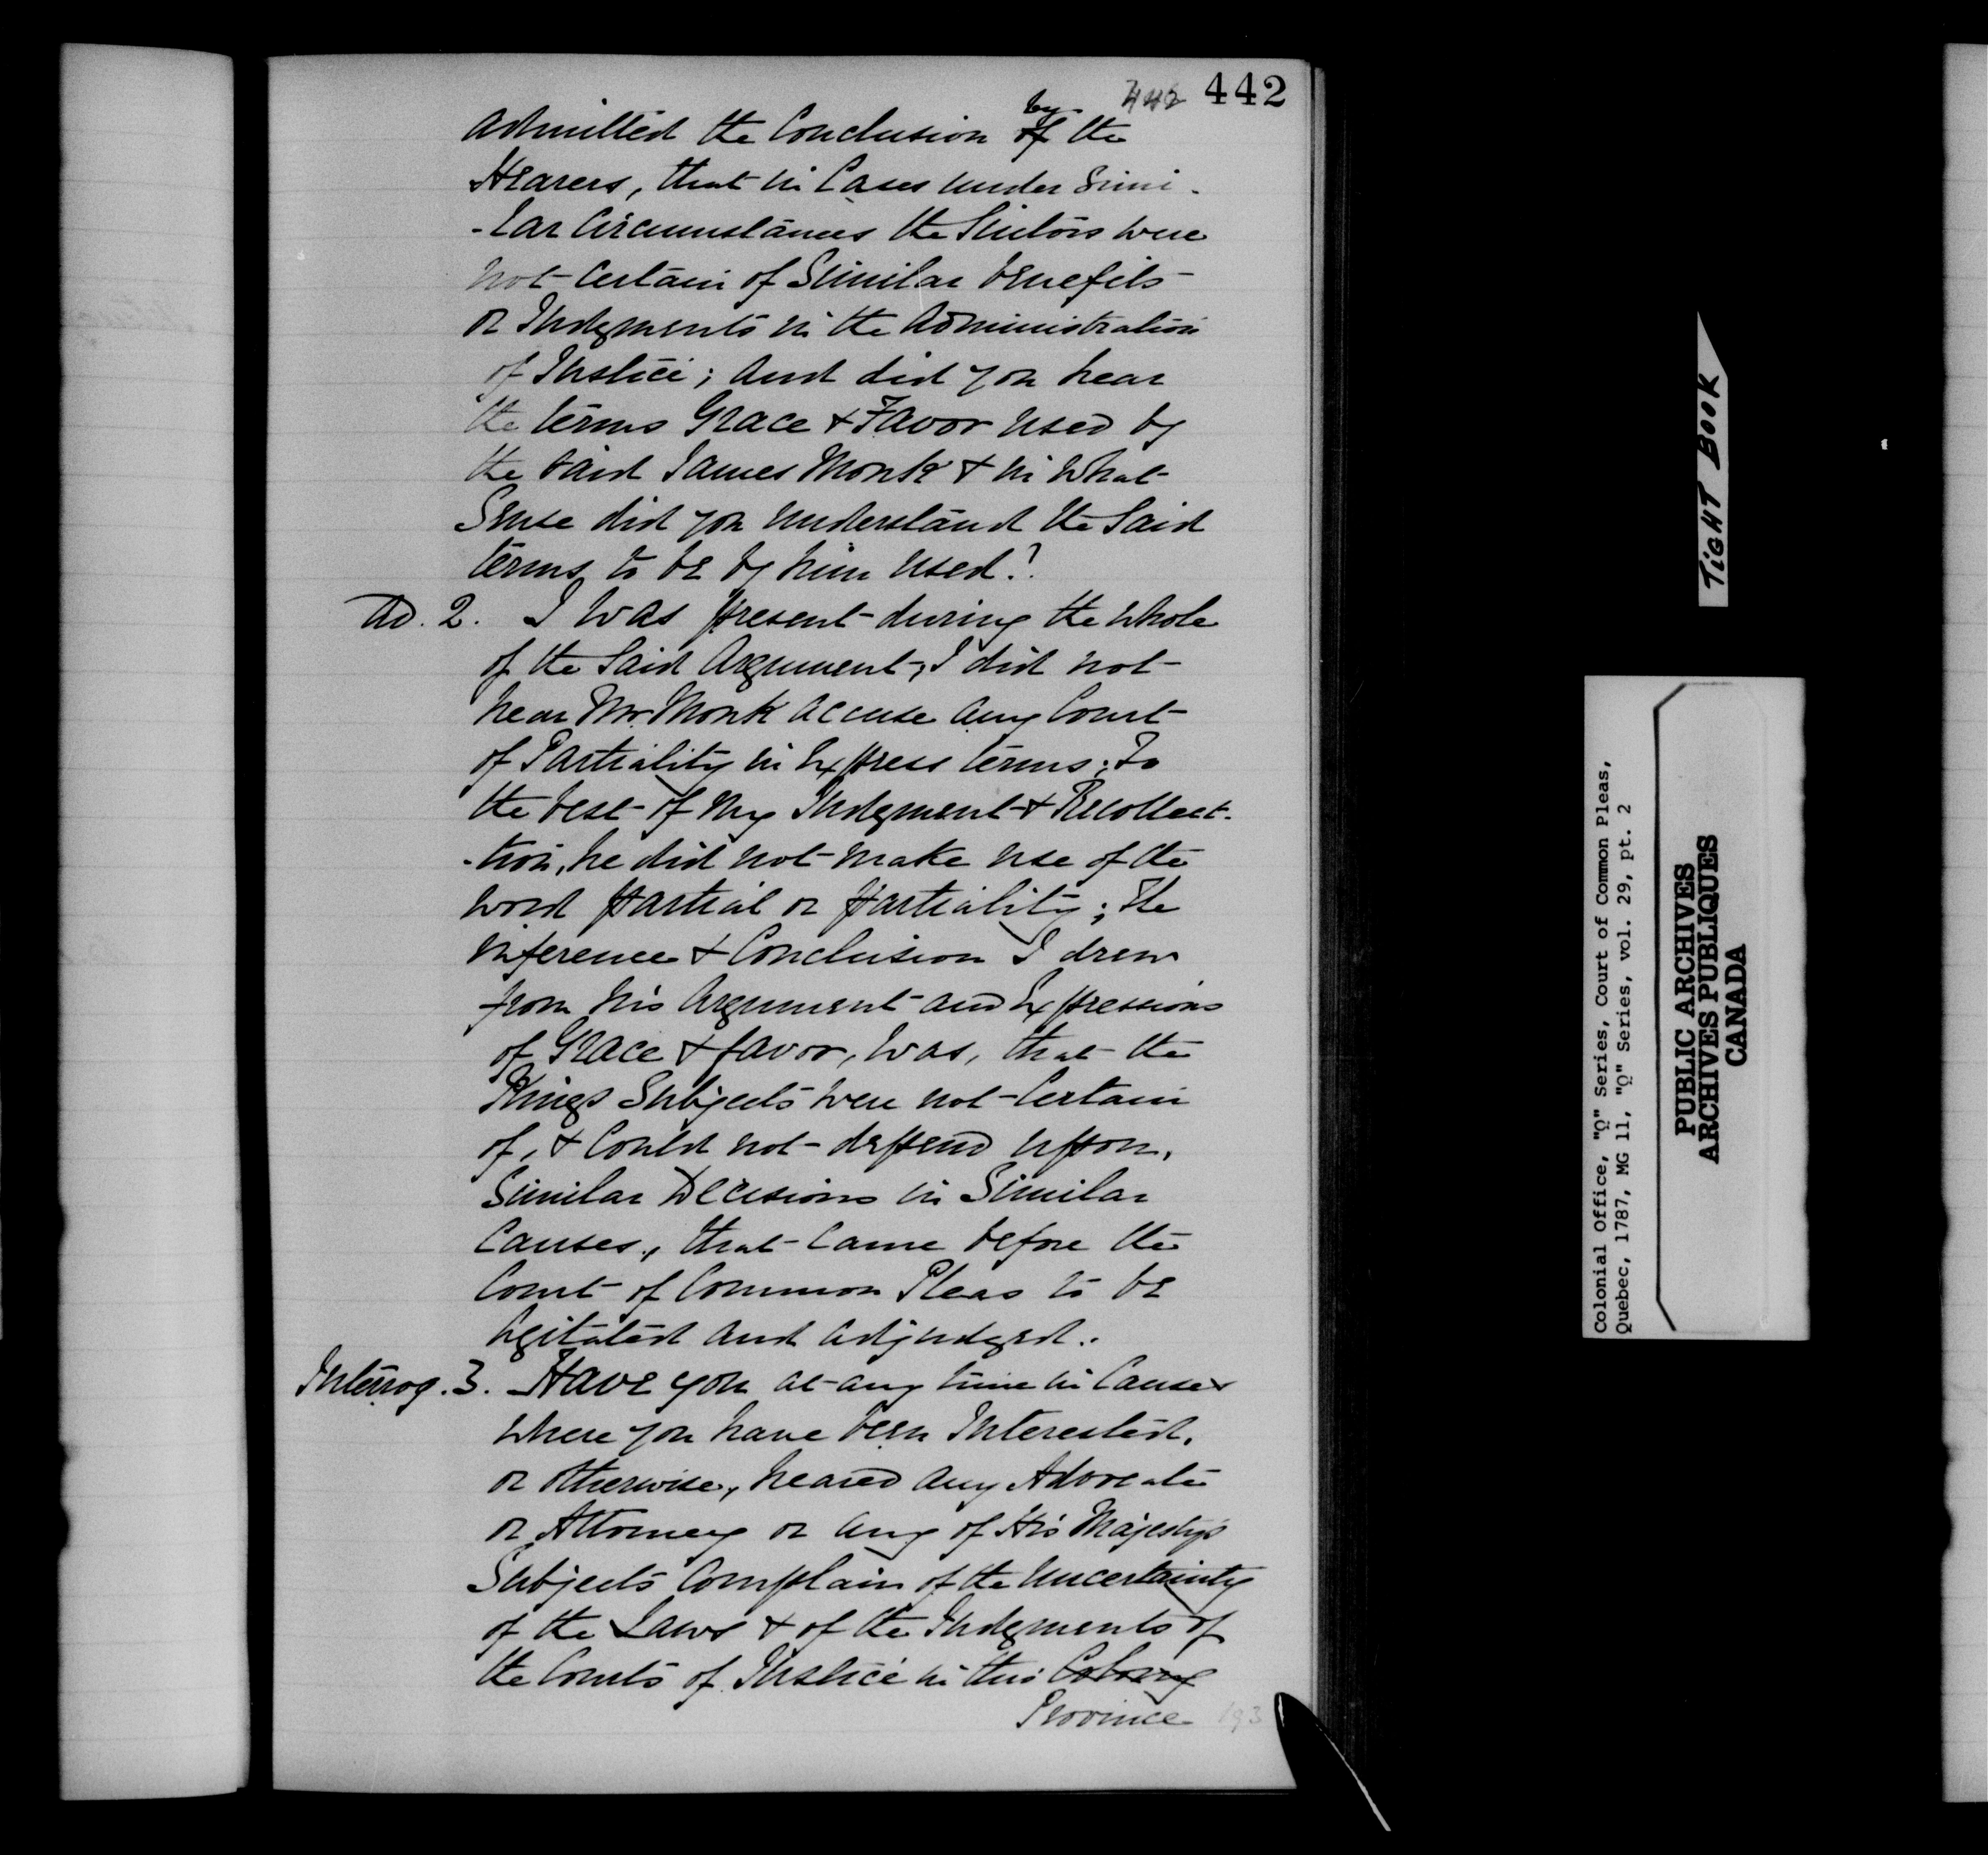 442 442
admitted the Conclusion by of the
Hearers, that in Cases under Simi-
-lar Circumstances the Suitors were
not certain of Similar benefits
or Judgments in the Administration
of Justice; and did you hear
the terms Grace & Favor used by
the said James Monk & in what
Sense did you understand the Said
terms to be by him used?
Ad. 2. I was present during the whole
of the Said Argument, I did not
hear Mr. Monk accuse any Court
of Partiality in Express terms; To
the best of my Judgment & Recollect-
-tion, he did not make use of the
word partial or partiality; The
inference & Conclusion I drew
from his Argument and Expressions
of Grace & favor, was, that the
Kings Subjects were not Certain
of, & Could not depend upon,
Similar Decisions in Similar
Causes, that came before the
Court of Common Pleas to be
Agitated and adjudged.
Interrog. 3. Have you at any time in Causes
where you have been Interested,
or otherwise, heard any Advocate
or Attorney or any of His Majesty's
Subjects Complain of the Uncertainty
of the Laws & of the Judgments of
the Courts of Justice in this Colony
Province 193
TIGHT BOOK
Colonial Office, "Q" Series, Court of Common Pleas,
Quebec, 1787, MG 11, "Q" Series, vol. 29, pt. 2
PUBLIC ARCHIVES
ARCHIVES PUBLIQUES
CANADA